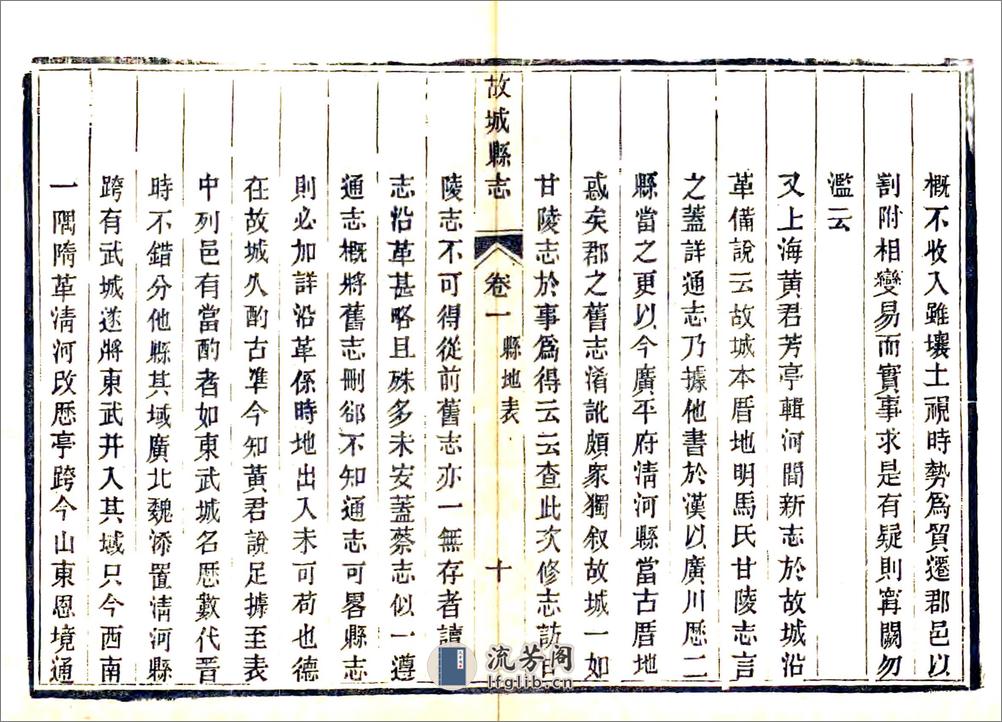 概不收入雖壤土視時勢爲貿遷郡邑以
割附相變易而實事求是有疑則寧闕勿
濫云
又上海黃君芳亭輯河間新志於故城沿
革備說云故城本厝地明馬氏甘陵志言
之蓋詳通志乃據他書於漢以廣川歷二
縣當之更以今廣平府清河縣當古厝地
惑矣郡之舊志淆訛頗衆獨叙故城一如
甘陵志於事爲得云云查此次修志訪甘
故城縣志 卷一 縣地表 十
陵志不可得從前舊志亦一無存者讀
志沿革甚略且殊多未安蓋蔡志似一遵
通志概將舊志刪郤不知通志可畧縣志
則必加詳沿革係時地出入未可苟也德
在故城久酌古準今知黃君說足據至表
中列邑有當酌者如東武城名歷數代晉
時不錯分他縣其域廣北魏添置清河縣
跨有武城遂將東武并入其域只今西南
一隅隋革清河改歷亭跨今山東恩境通
流芳阁
lfglib.cn